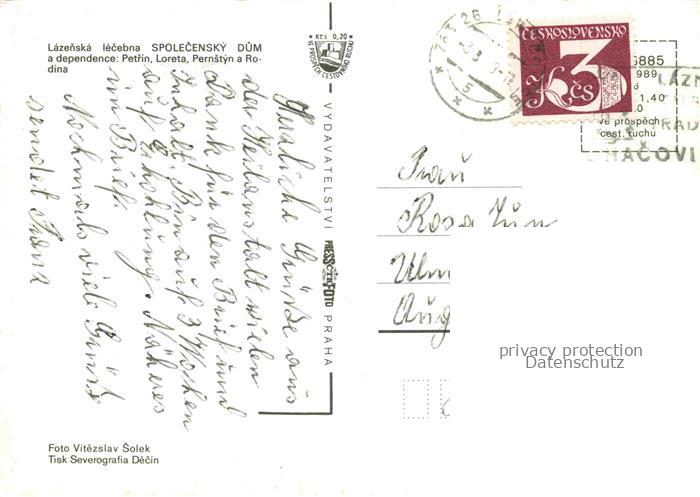 Lázeňská léčebna SPOLEČENSKÝ DŮM
a dependence: Petřín, Loreta, Pernštýn a Ro-
dina
Herzliche Grüße aus
der Heilanstalt vielen
Dank für den Brief und
Inhalt. Bin auf 3 Wochen
auf Erholung. Näheres
im Brief.
Nochmals viele Grüße
sendet Franz
Kčs 0,20
VE PROSPĚCH CESTOVNÍHO RUCHU
VYDAVATELSTVÍ PRESSFOTO PRAHA
ČTK
763 26
ČESKOSLOVENSKO
3 Kčs
6885
1989
1,40
ve prospěch
cest. ruchu
LÁZN
HAČOVI
Frau
Rosa
Ulm
Aug
privacy protection
Datenschutz
Foto Vítězslav Šolek
Tisk Severografia Děčín